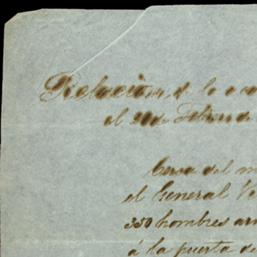 Relacion, de lo
el 21 de Febrero de
Cerca del
el General
350 hombres
á la puerta de